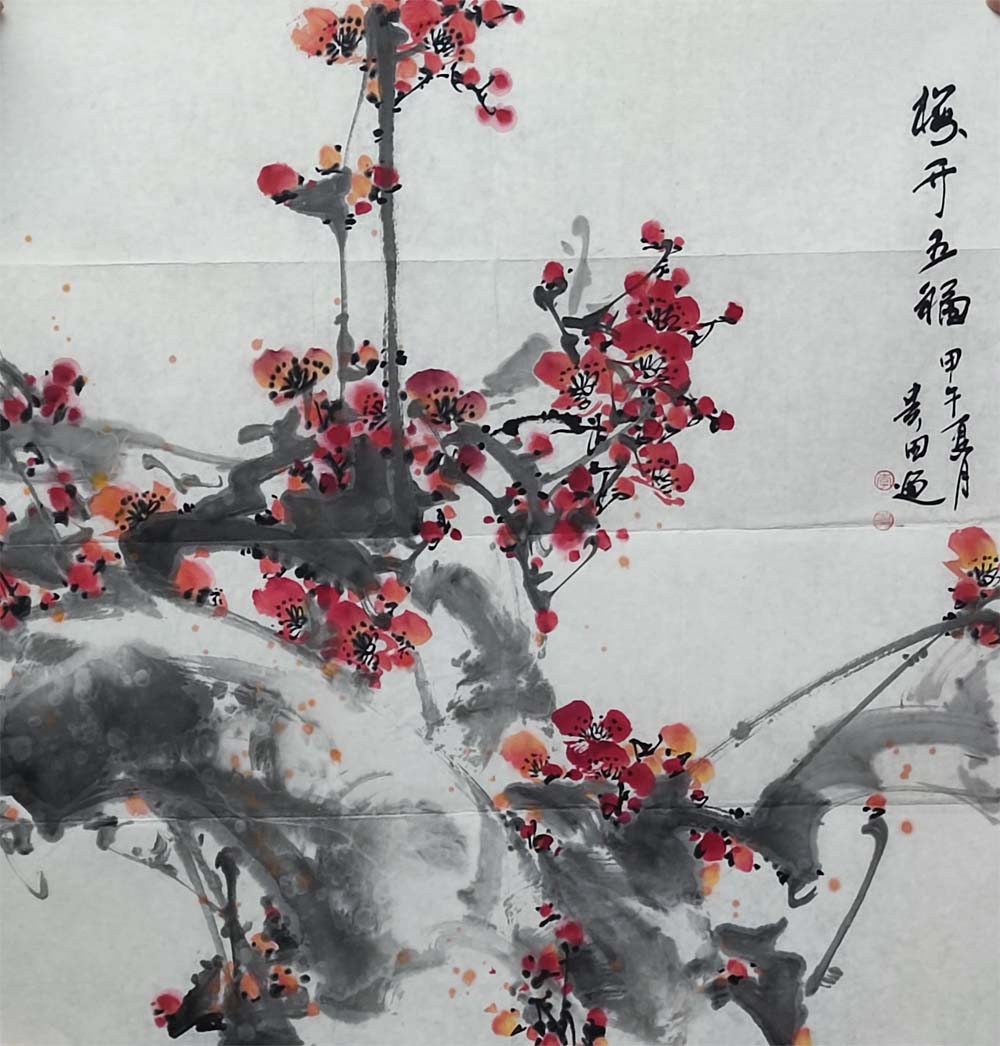 梅开五福
甲午夏月
贵田画